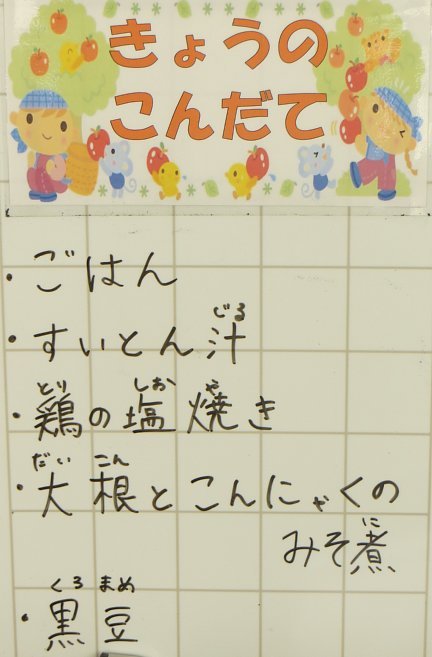 きょうの
こんだて
・ごはん
じる
・すいとん汁
とり しお や
・鶏の塩焼き
だい こん
・大根とこんにゃくの
に
みそ煮
くろ まめ
・黒豆